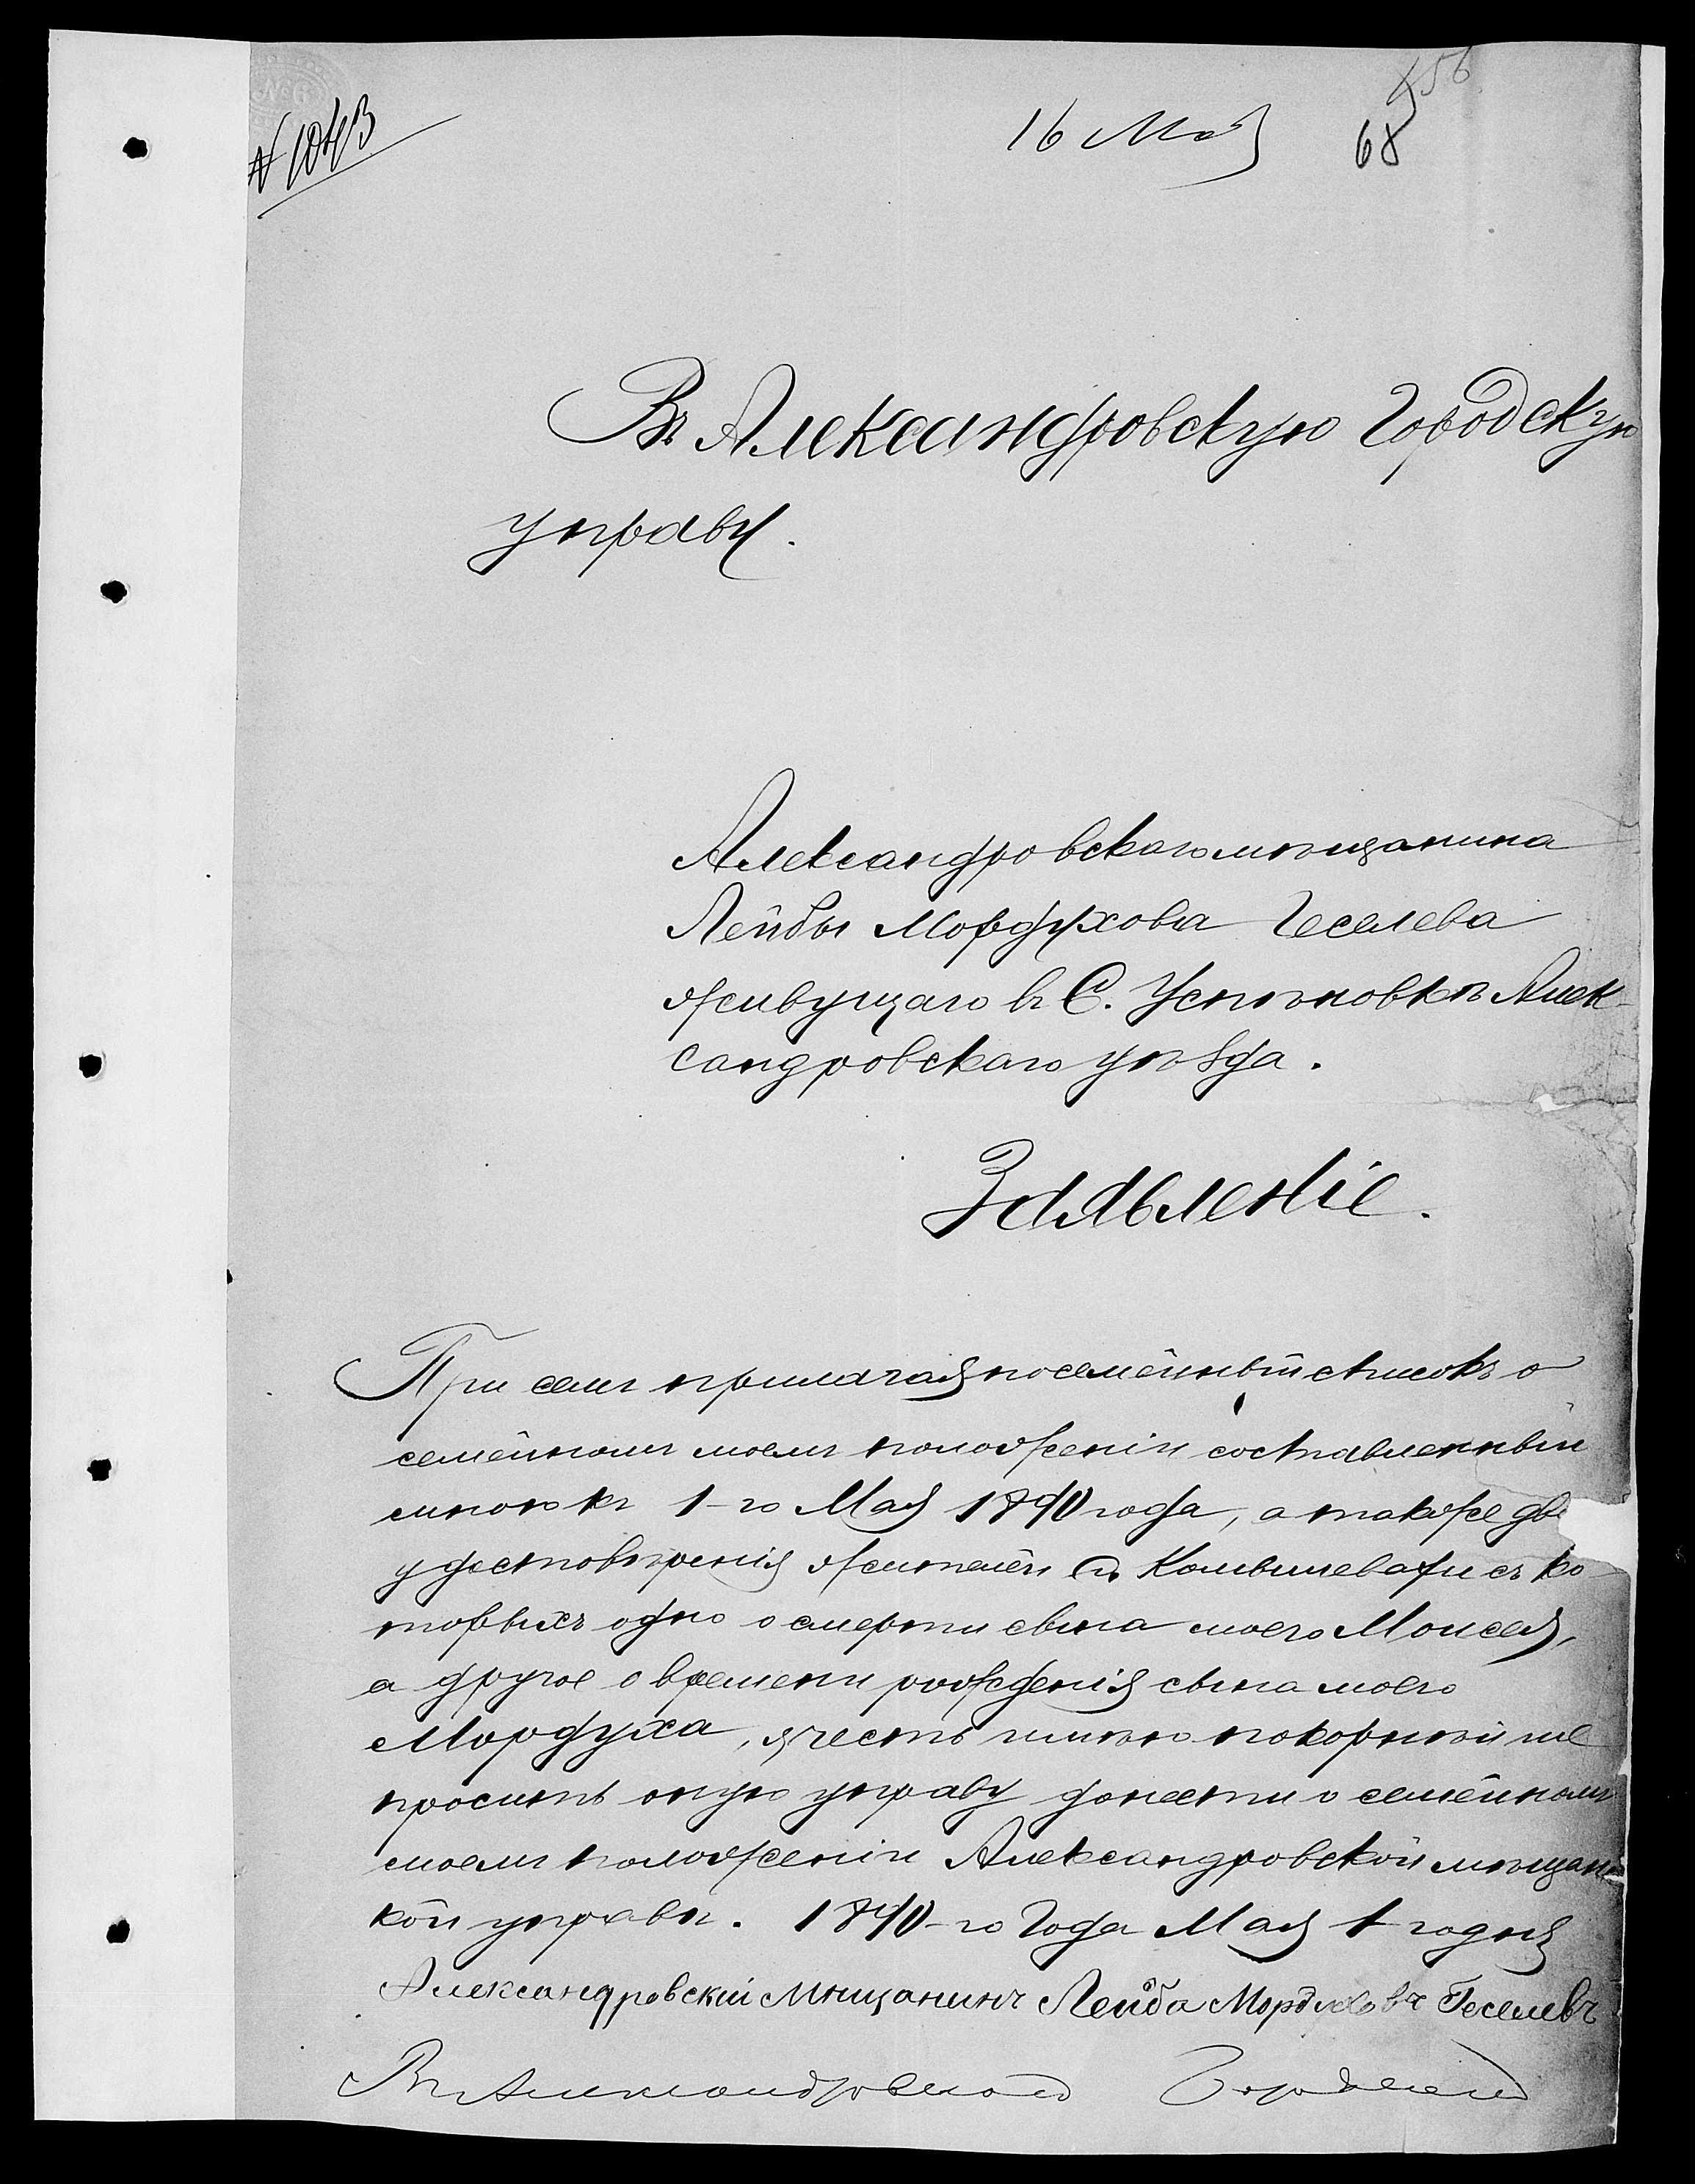 № 1043
16 Мая
456
68
Въ Александровскую Городскую
управу.
Александровскаго мѣщанина
Лейбы Мордухова Геселева
живущаго въ С. Успѣновкѣ Алек-
сандровскаго уѣзда.
Заявленіе.
При семъ прилагая посемейный списокъ о
семейномъ моемъ положеніи составленный
мною къ 1-го Мая 1890 года, а также две
удостовѣренія жителей с. Камышевахи съ ко
торыхъ одно о смерти сына моего Моисея,
а другое о времени рожденія сына моего
Мордуха, я честь имѣю покорнѣйше
просить оную управу донести о семейномъ
моемъ положеніи Александровской мѣщанс
кой управѣ. 1890-го Года Мая 1 го дня
Александровскій Мѣщанинъ Лейба Мордуховъ Геселевъ
Въ Александровской Городской